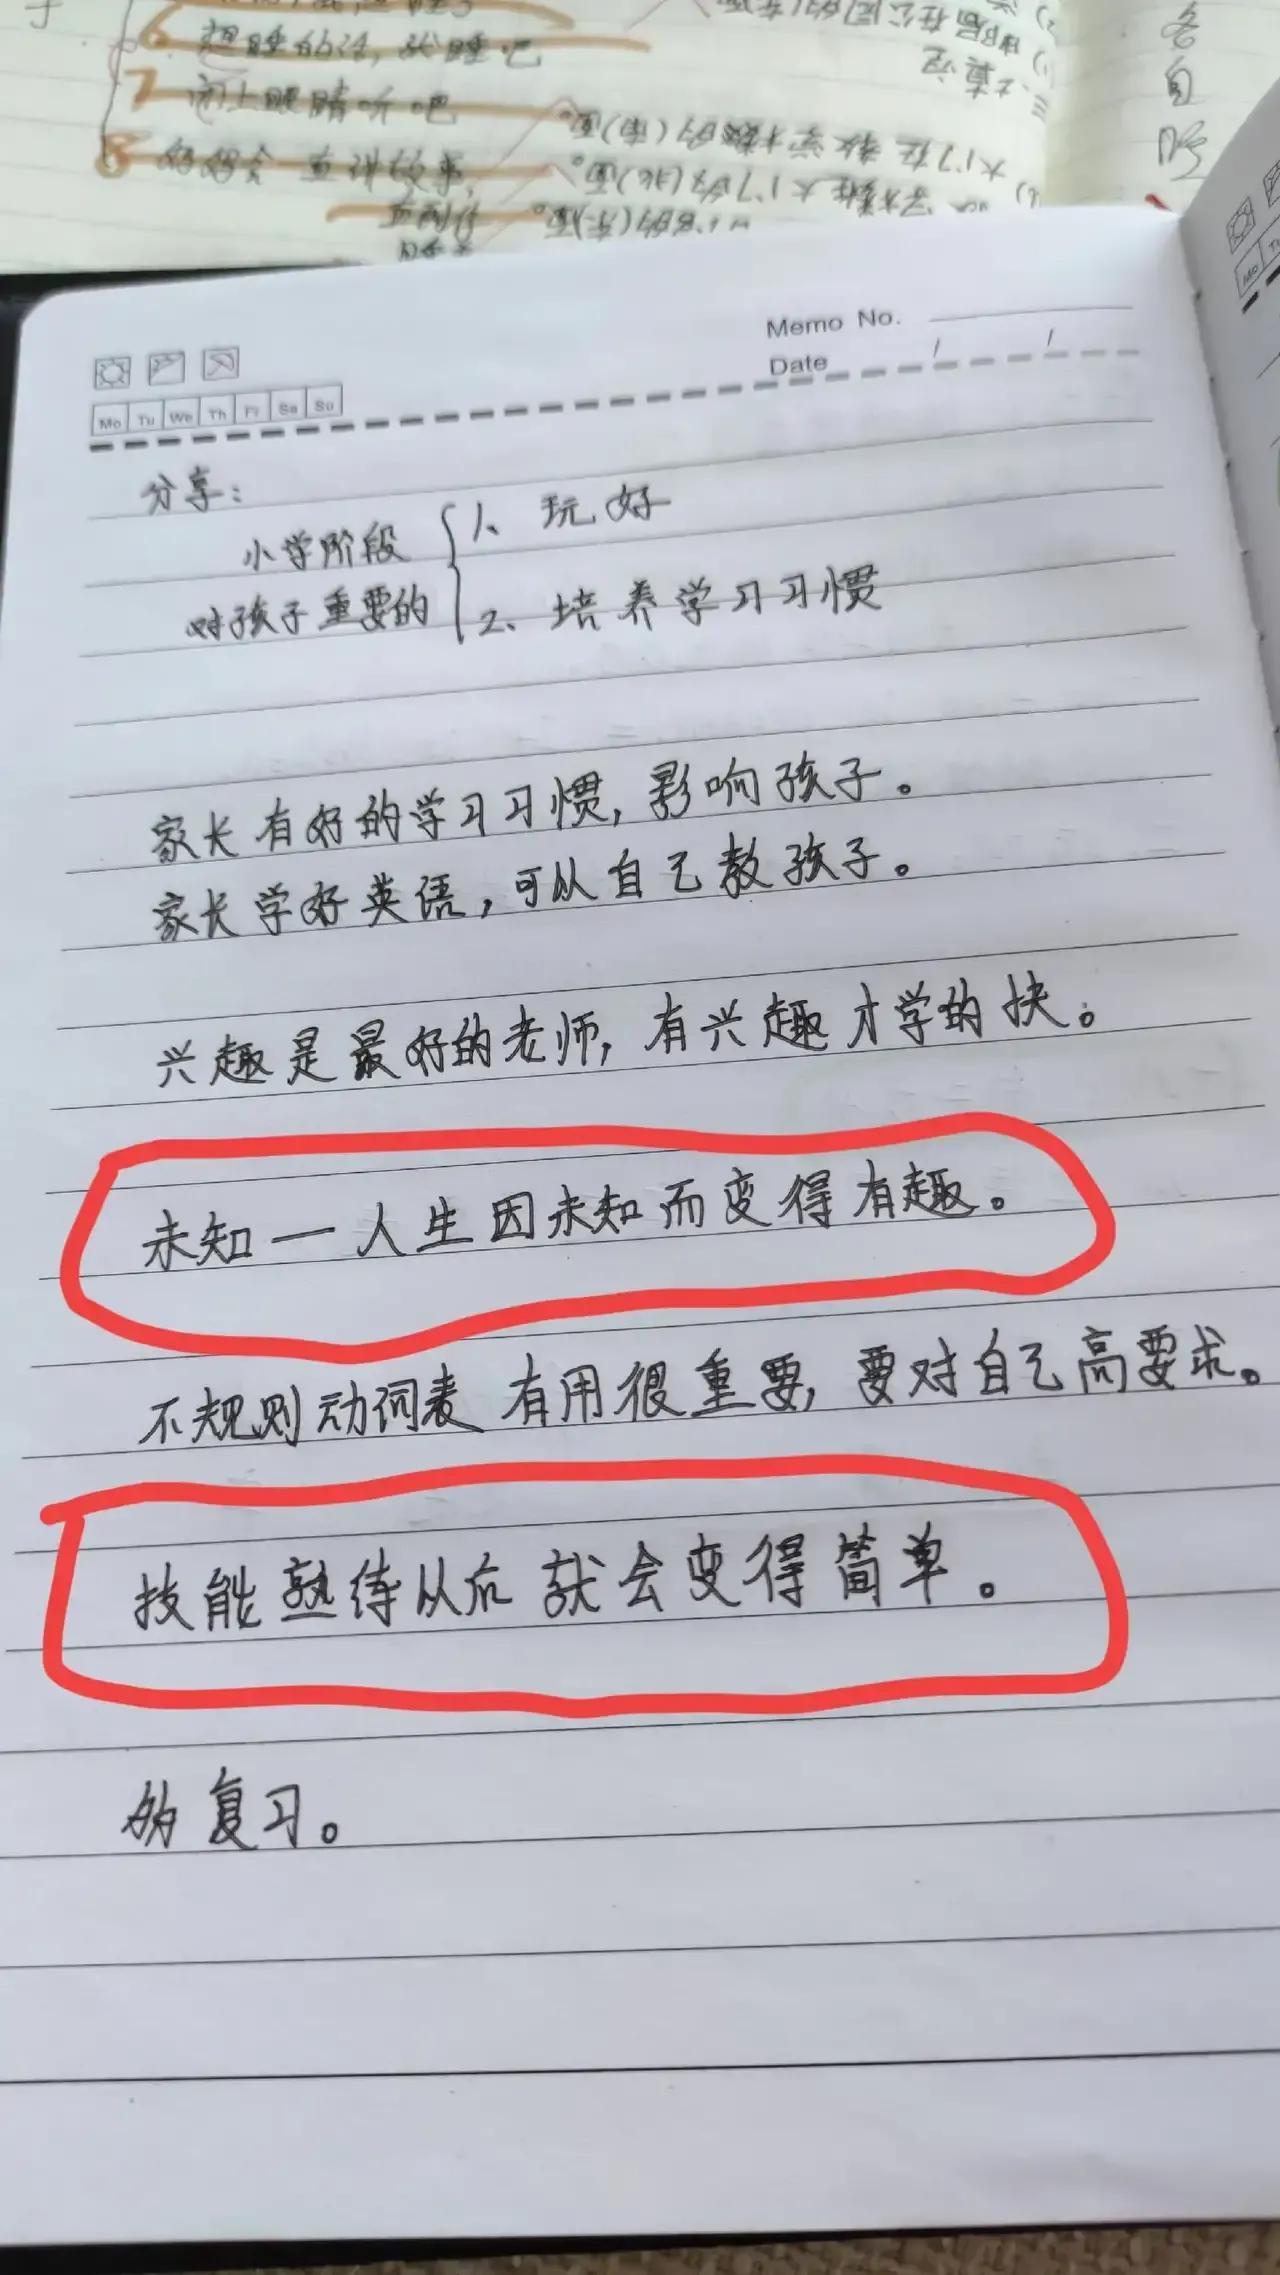 6 想睡的话，就睡吧
7 闭上眼睛听吧
各
自
Memo No.
Date / /
Mo Tu We Th Fr Sa Su
分享：
小学阶段
对孩子重要的
1、玩好
2、培养学习习惯
家长有好的学习习惯，影响孩子。
家长学好英语，可从自己教孩子。
兴趣是最好的老师，有兴趣才学的快。
未知一人生因未知而变得有趣。
不规则动词表 有用很重要，要对自己高要求。
技能熟练从后就会变得简单。
多复习。